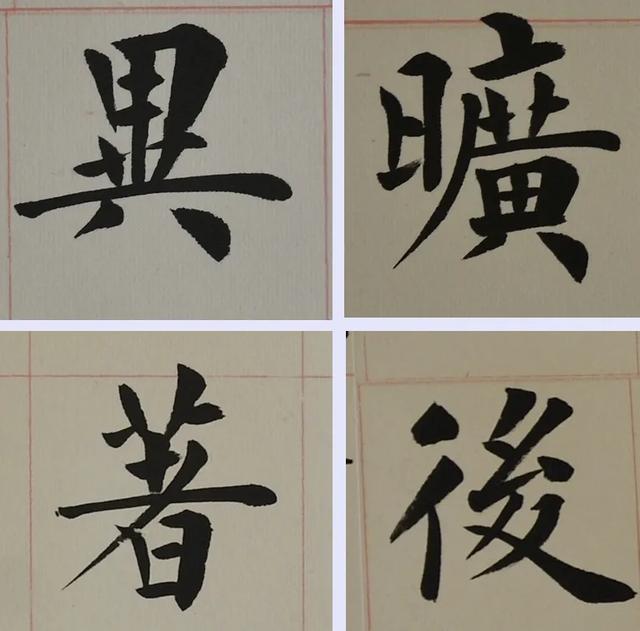 異曠
著後